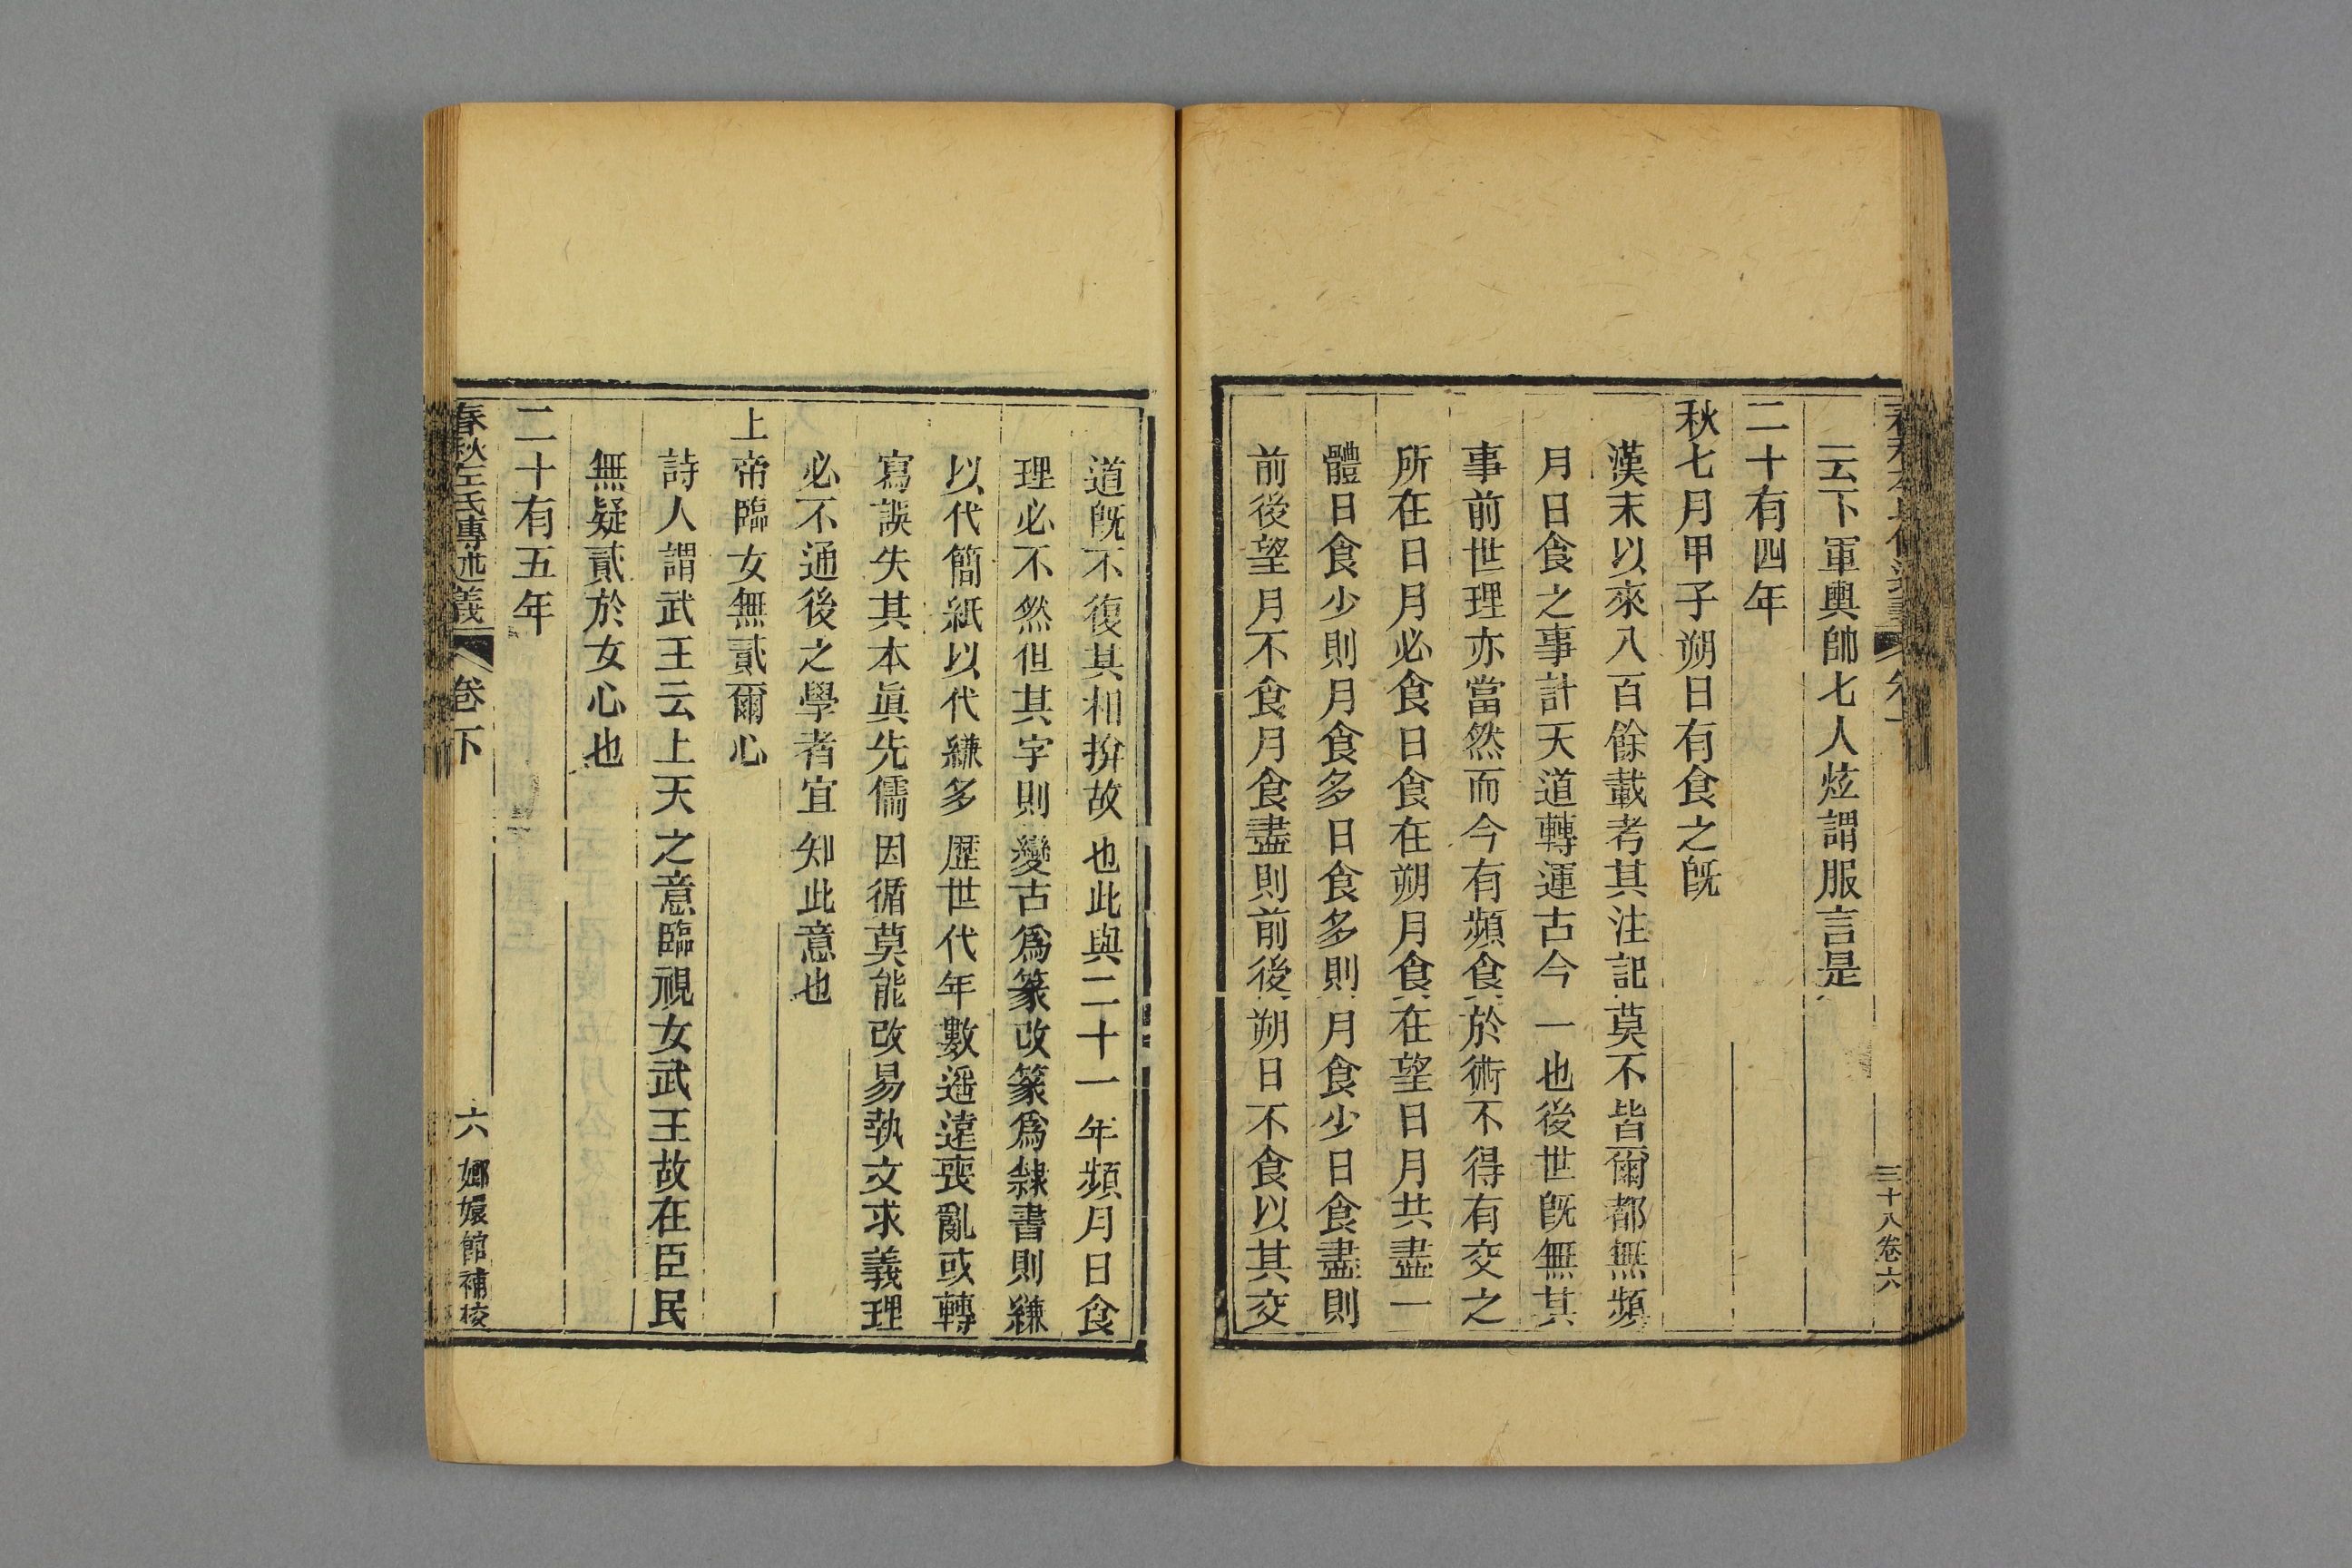 三十八卷六
云下軍輿帥七人炫謂服言是
二十有四年
秋七月甲子朔日有食之旣
漢末以來八百餘載考其注記莫不皆爾都無頻
月日食之事計天道轉運古今一也後世旣無其
事前世理亦當然而今有頻食於術不得有交之
所在日月必食日食在朔月食在望日月共盡一
體日食少則月食多日食多則月食少日食盡則
前後望月不食月食盡則前後朔日不食以其交
道旣不復其相揜故也此與二十一年頻月日食
理必不然但其字則變古爲篆改篆爲隸書則縑
以代簡紙以代縑多歷世代年數遥遠喪亂或轉
寫誤失其本眞先儒因循莫能改易執文求義理
必不通後之學者宜知此意也
上帝臨女無貳爾心
詩人謂武王云上天之意臨視女武王故在臣民
無疑貳於女心也
二十有五年
春秋左氏傳述義 卷下 六 嫏嬛館補校